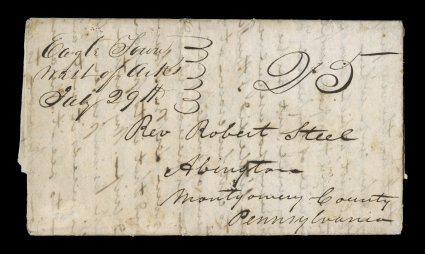 Eagle Town
West of Arks
July 29th
25
Rev Robert Steel
Abington
Montgomery County
Pennsylvania